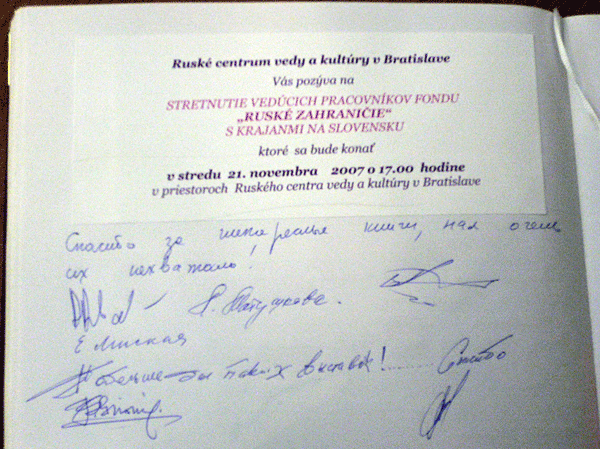 Ruské centrum vedy a kultúry v Bratislave
Vás pozýva na
STRETNUTIE VEDÚCICH PRACOVNÍKOV FONDU
„RUSKÉ ZAHRANIČIE“
S KRAJANMI NA SLOVENSKU
ktoré sa bude konať
v stredu 21. novembra 2007 o 17.00 hodine
v priestoroch Ruského centra vedy a kultúry v Bratislave
Спасибо за книги, нам очень
их нехватало!
Е Минская
Побольше бы таких выставок!...... Спасибо